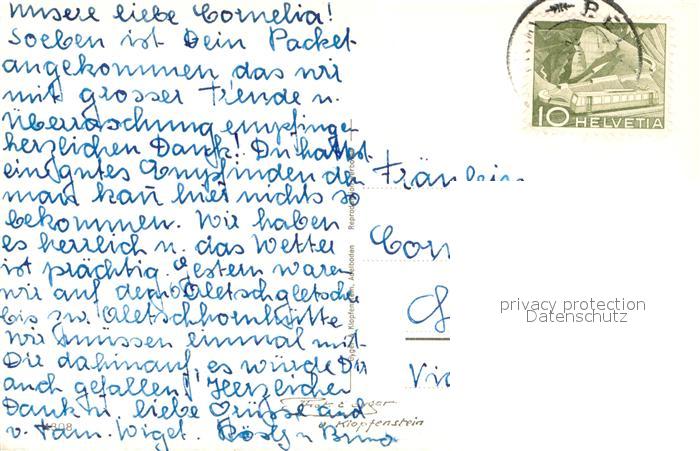 unsere liebe Cornelia!
Soeben ist Dein Packet
angekommen das wir
mit grosser Freude u.
Überraschung empfingen
herzlichen Dank! Du hattest
ein gutes Empfinden den
man kañ hier nichts so
bekommen. Wir haben
es herrlich u. das Wetter
ist prächtig. Gestern waren
wir auf dem Aletschgletscher
bis zur Aletschhornhütte
wir müssen einmal mit
Dir dahinauf, es würde Dir
auch gefallen! Herzlichen
Dank u. liebe Grüsse auch
v. Fam. Wiget. Rösly u Bruno
4308
Gyger & Klopfenstein, Adelboden
Reproduction interdite
& Klopfenstein
Fräulein
Corn
G
Vi
BE
10 HELVETIA
privacy protection
Datenschutz